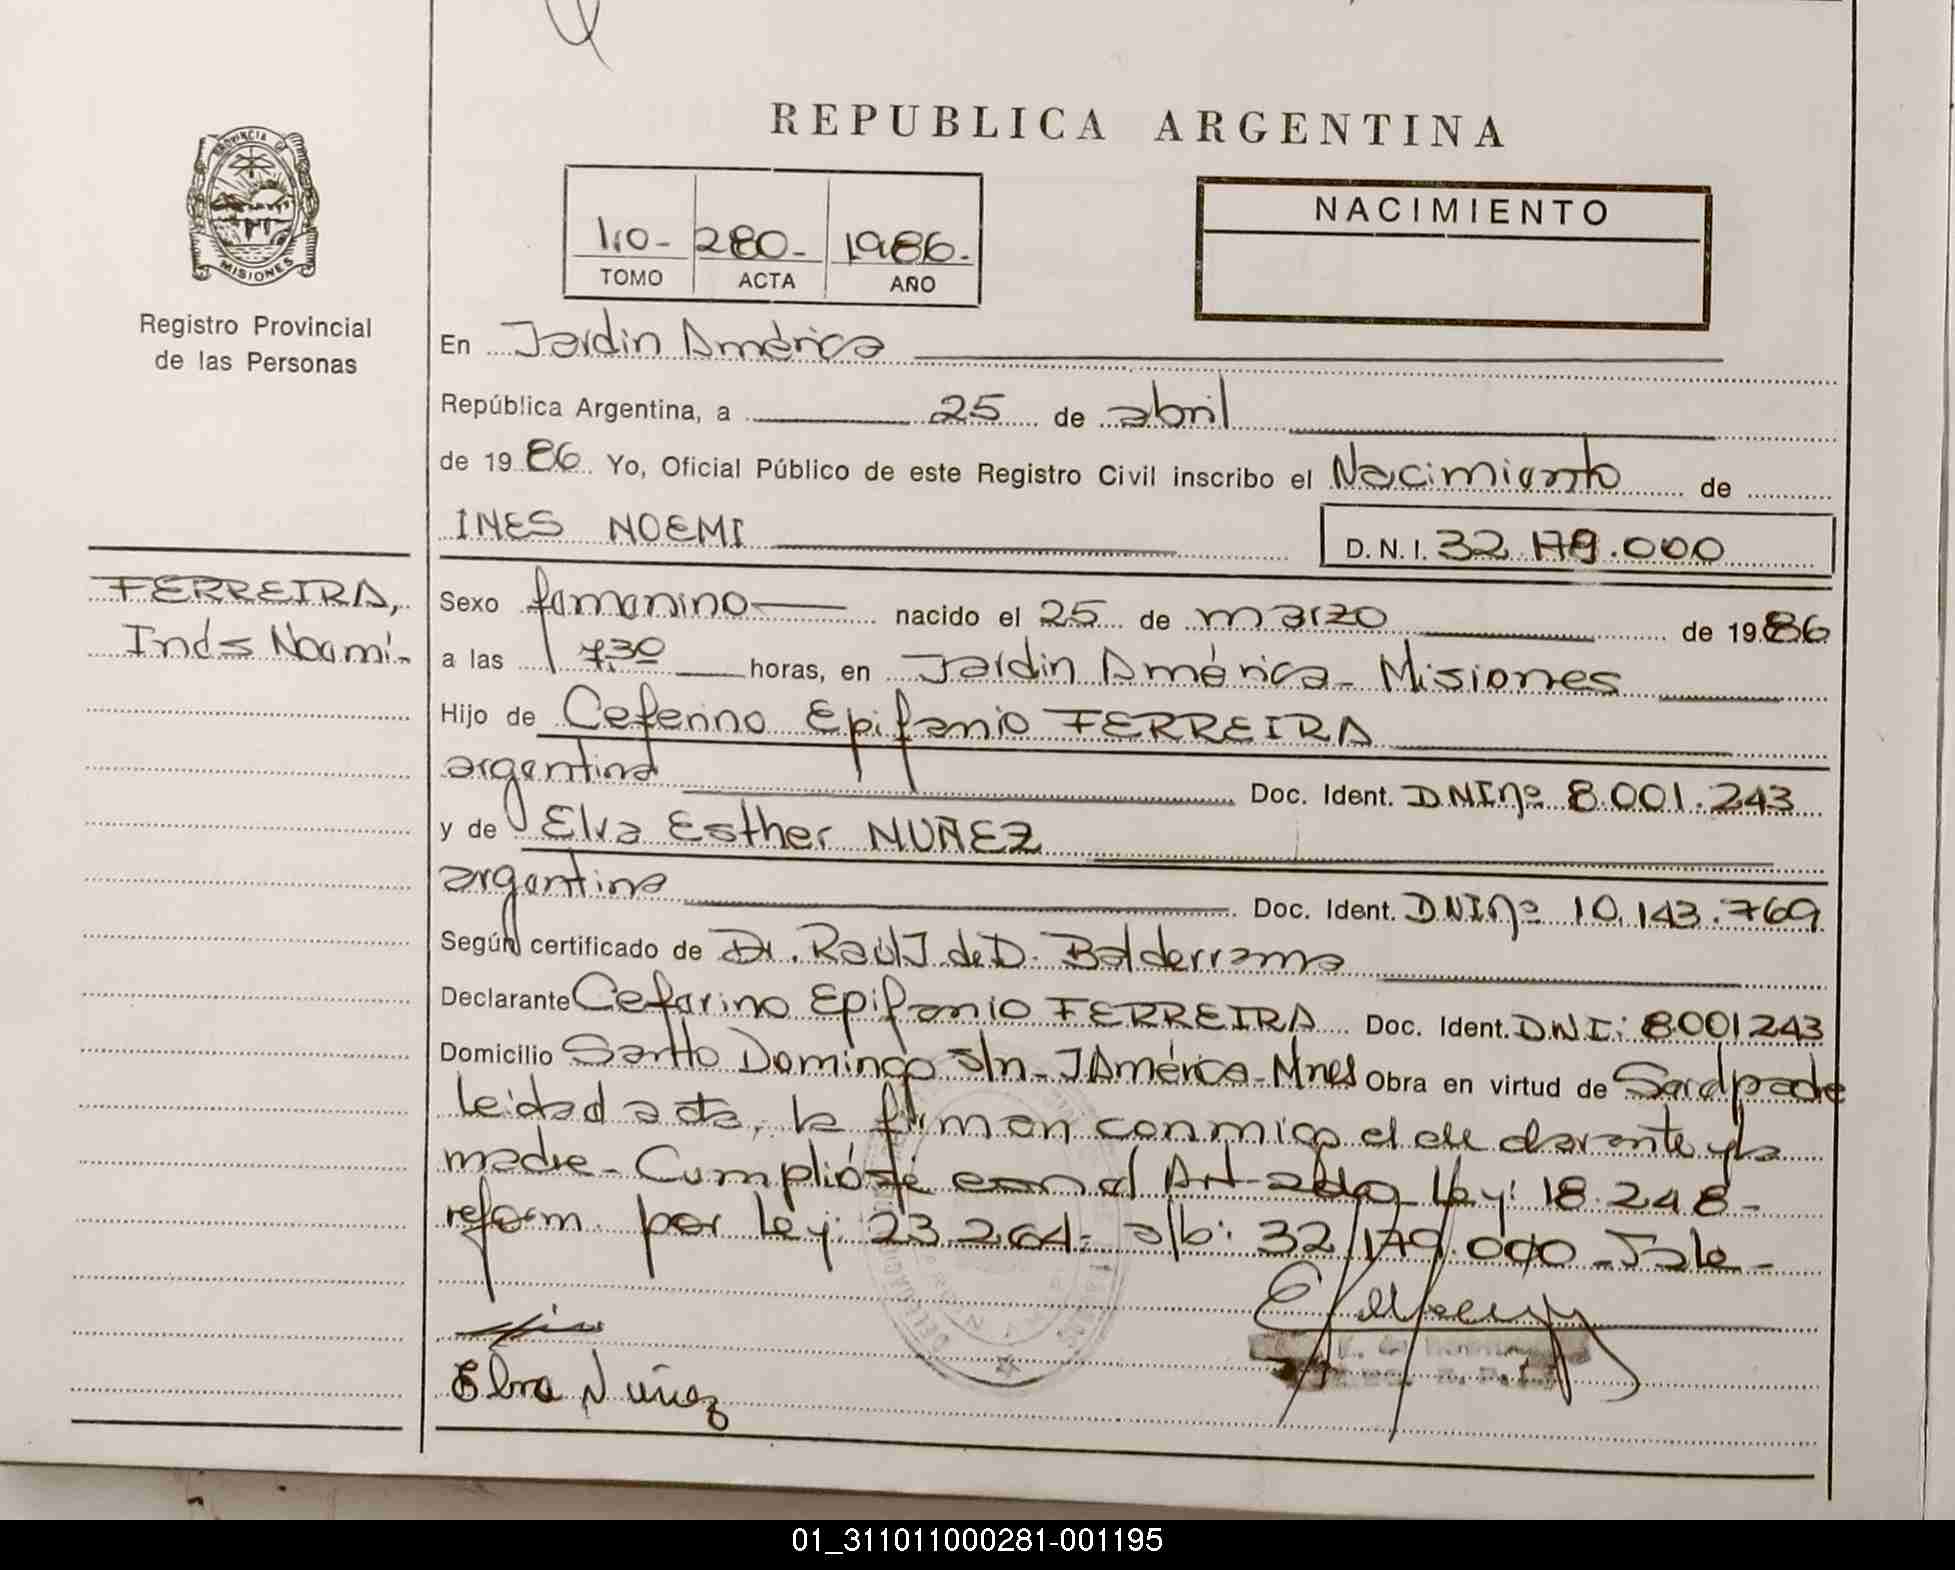 REPUBLICA ARGENTINA
PROVINCIA DE
MISIONES
Registro Provincial
de las Personas
1,0- 280- 1986-
TOMO ACTA AÑO
NACIMIENTO
En Jardin América
República Argentina, a 25 de abril
de 1986 Yo, Oficial Público de este Registro Civil inscribo el Nacimiento de
INES NOEMI D.N.I. 32.179.000
FERREIRA,
Inés Noemi-
Sexo femenino nacido el 25 de marzo de 1986
a las 7,30 horas, en Jardin América - Misiones
Hijo de Ceferino Epifanio FERREIRA
argentina Doc. Ident. DNI nº 8.001.243
y de Elva Esther NUÑEZ
argentina Doc. Ident. DNI nº 10.143.769
Según certificado de Dr. Raúl J. de D. Balderrama
Declarante Ceferino Epifanio FERREIRA Doc. Ident. D.N.I: 8001243
Domicilio Santo Domingo s/n - J América - Mnes Obra en virtud de Ser el padre
leida el acta, la firman conmigo el declarante y la
madre - Cumplióse con el Art - Ley: 18.248 -
reform. por Ley: 23.264 - a/b: 32.179.000 - Vale -
Elva Nuñez
01_311011000281-001195